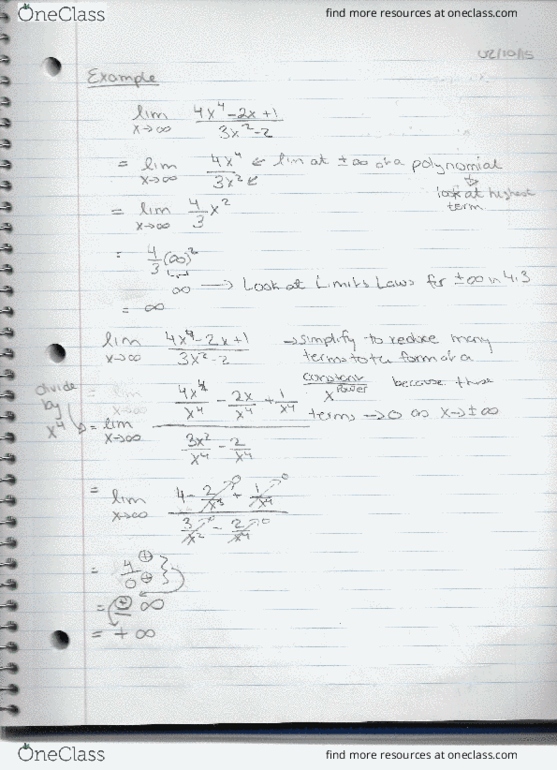 OneClass find more resources at oneclass.com
02/10/15
Example
lim x→∞ (4x⁴-2x+1)/(3x²-2)
= lim x→∞ 4x⁴/3x² ← lim at ±∞ of a polynomial
↓ look at highest term
= lim x→∞ 4/3 x²
= 4/3 (∞)²
∞ → Look at Limits Laws for ±∞ in 4.3
= ∞
lim x→∞ (4x⁴-2x+1)/(3x²-2) → simplify to reduce many
terms to the form of a
constant/x^power because these
terms → 0 as x→±∞
divide by x⁴
= lim x→∞ (4x⁴/x⁴ - 2x/x⁴ + 1/x⁴)/(3x²/x⁴ - 2/x⁴)
= lim x→∞ (4 - 2/x³ + 1/x⁴)/(3/x² - 2/x⁴)
= 4/0
= ∞
= +∞
OneClass find more resources at oneclass.com